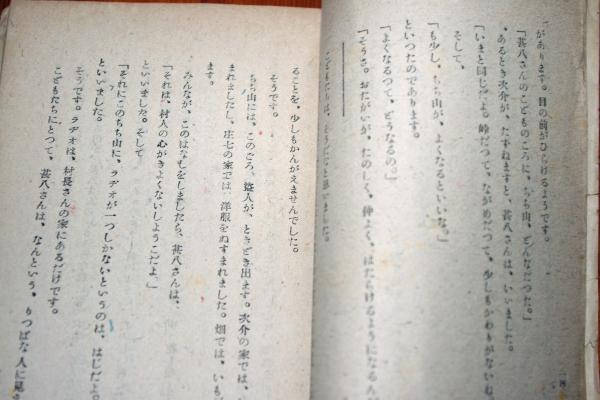 があります。目の前がひらけるようです。
「甚八さんのこどものころに、ちち山、どんなだつた。」
あるとき次介が、たずねますと、甚八さんは、いいました。
「いまと同じだよ。峠だつて、ながめだつて、少しもかわりがないね。
そして、
「も少し、ちち山が、よくなるといいな。」
といつたのであります。
「よくなるつて、どうなるの。」
「そうさ。おたがいが、たのしく、仲よく、はたらけるようになるん
こどもたちは、そうだと思いました。
ることを、少しもかんがえませんでした。
そうです。
ちち山には、このごろ、盗人が、ときどき出ます。次介の家では、
まれましたし、庄七の家では、洋服をぬすまれました。畑では、いも
ます。
みんなが、このはなしをしましたら、甚八さんは、
「それは、村人の心がきよくないしようこだよ。」
といいました。そして
「それにこのちち山に、ラヂオが一つしかないというのは、はじだよ。
といいました。
そうです。ラヂオは、村長さんの家にあるだけです。
こどもたちにとつて、甚八さんは、なんという、りつぱな人に見